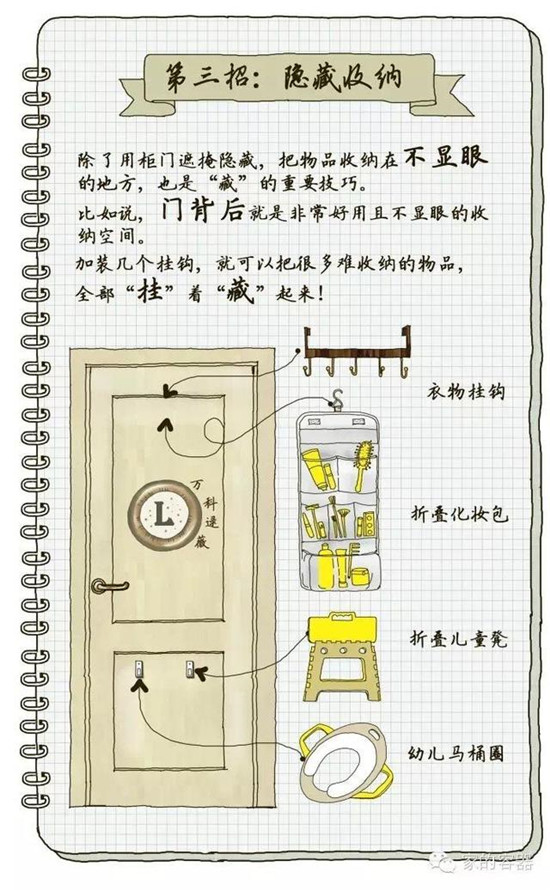 第三招：隐藏收纳
除了用柜门遮掩隐藏，把物品收纳在不显眼
的地方，也是“藏”的重要技巧。
比如说，门背后就是非常好用且不显眼的收
纳空间。
加装几个挂钩，就可以把很多难收纳的物品，
全部“挂”着“藏”起来！
衣物挂钩
万科逯薇
L
折叠化妆包
折叠儿童凳
幼儿马桶圈
家的容器